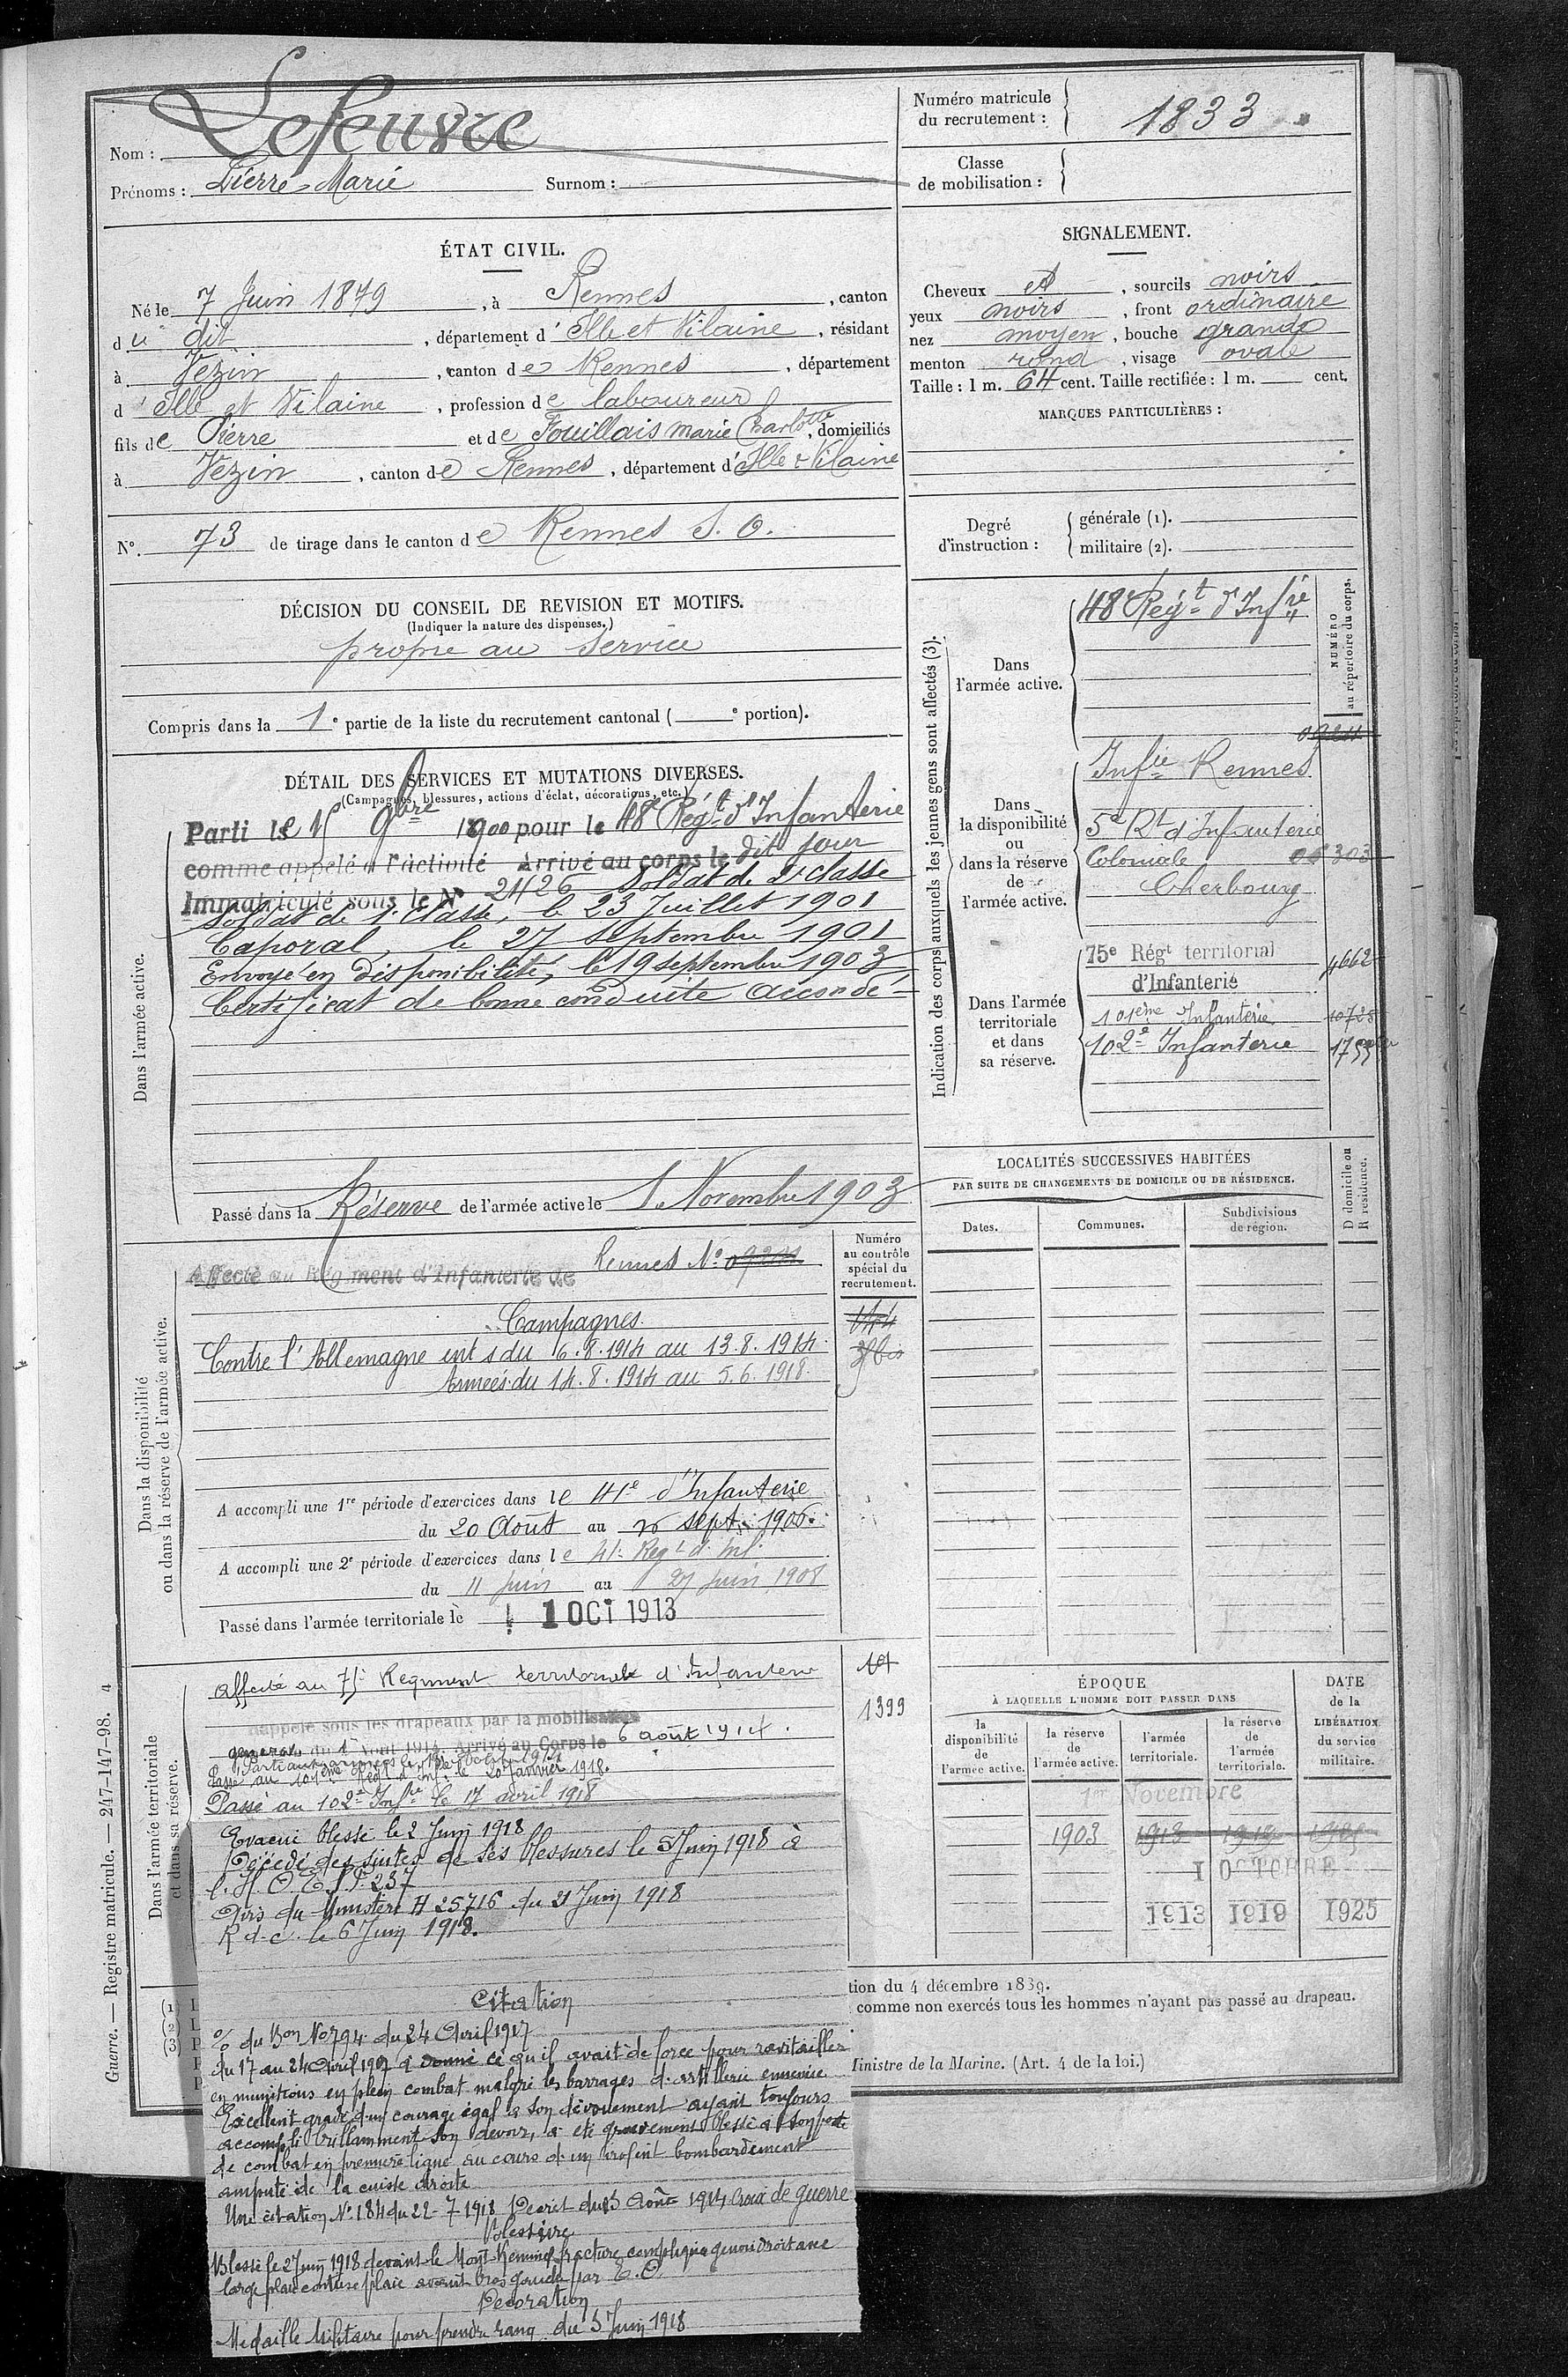 Nom : Lefeuvre
Prénoms : Pierre Marie Surnom :
ÉTAT CIVIL.
Né le 7 Juin 1879, à Rennes, canton
du dit, département d'Ille et Vilaine, résidant
à Vezin, canton de Rennes, département
d'Ille et Vilaine, profession de laboureur
fils de Pierre et de Fouillais Marie Charlotte, domiciliés
à Vezin, canton de Rennes, département d'Ille & Vilaine
N°. 73 de tirage dans le canton de Rennes S. O.
DÉCISION DU CONSEIL DE REVISION ET MOTIFS.
(Indiquer la nature des dispenses.)
propre au service
Compris dans la 1e partie de la liste du recrutement cantonal ( e portion).
DÉTAIL DES SERVICES ET MUTATIONS DIVERSES.
(Campagnes, blessures, actions d'éclat, décorations, etc.)
Dans l'armée active.
Parti le 15 9bre 1900 pour le 48e Régt d'Infanterie
comme appelé à l'activité Arrivé au corps le dit jour
Immatriculé sous le N° 2426 Soldat de 2e classe
Soldat de 1e classe, le 23 Juillet 1901
Caporal, le 27 septembre 1901
Envoyé en disponibilité, le 19 septembre 1903
Certificat de bonne conduite accordé
Passé dans la Réserve de l'armée active le 1 Novembre 1903
Dans la disponibilité
ou dans la réserve de l'armée active.
Numéro
au contrôle
spécial du
recrutement.
Affecté au Régiment d'Infanterie de Rennes N°
Campagnes
Contre l'Allemagne int du 6.8.1914 au 13.8.1914
Armées du 14.8.1914 au 5.6.1918
A accompli une 1re période d'exercices dans le 41e d'Infanterie
du 20 Août au 16 Sept. 1906.
A accompli une 2e période d'exercices dans le 41e Regt d'Inf.
du 11 juin au 27 juin 1908
Passé dans l'armée territoriale le 1 OCT 1913
Dans l'armée territoriale
et dans sa réserve.
affecté au 75e Régiment territorial d'Infanterie
1399
Rappelé sous les drapeaux par la mobilisation
générale du 1er Août 1914. Arrivé au Corps le 6 août 1914.
Passé au 101ème Regt d'Infie le 20 Janvier 1918.
Passé au 102e Infie le 17 avril 1918
Evacué blessé le 2 Juin 1918
Décédé des suites de ses blessures le 5 Juin 1918 à
l'H.O.E. S.P. 237
Avis du Ministère H 25716 du 21 Juin 1918
R.d.c. le 6 Juin 1918.
Citation
% du Bon No 794 du 24 Avril 1917
du 17 au 24 Avril 1917 a donné ce qu'il avait de force pour ravitailler
en munitions en plein combat malgré les barrages d'artillerie ennemie
Excellent gradé d'un courage égal à son dévouement ayant toujours
accompli brillamment son devoir, a été gravement blessé à son poste
de combat en première ligne au cours d'un violent bombardement
amputé de la cuisse droite
Une citation N° 184 du 22-7-1918 Decret du 13 Août 1914 Croix de guerre
Blessure
Blessé le 2 Juin 1918 devant le Mont Kemmel fracture compliquée genou droit avec
large plaie contuse plaie avant bras gauche par E.O.
Décoration
Médaille Militaire pour prendre rang du 5 Juin 1918
Guerre. — Registre matricule. — 247-147-98. 4
Numéro matricule
du recrutement : 1833
Classe
de mobilisation :
SIGNALEMENT.
Cheveux et, sourcils noirs
yeux noirs, front ordinaire
nez moyen, bouche grande
menton rond, visage ovale
Taille : 1 m. 64 cent. Taille rectifiée : 1 m. cent.
MARQUES PARTICULIÈRES :
Degré
d'instruction :
générale (1).
militaire (2).
Indication des corps auxquels les jeunes gens sont affectés (3).
NUMÉRO
au répertoire du corps.
Dans
l'armée active.
48e Régt d'Infie
Dans
la disponibilité
ou
dans la réserve
de
l'armée active.
Infie Rennes
5e Rt d'Infanterie
Coloniale
Cherbourg
Dans l'armée
territoriale
et dans
sa réserve.
75e Régt territorial
d'Infanterie 4662
101ème Infanterie 10728
102e Infanterie
LOCALITÉS SUCCESSIVES HABITÉES
PAR SUITE DE CHANGEMENTS DE DOMICILE OU DE RÉSIDENCE.
Dates. Communes. Subdivisions de région. D domicile ou R résidence.
ÉPOQUE
À LAQUELLE L'HOMME DOIT PASSER DANS
la disponibilité de l'armée active.
la réserve de l'armée active.
l'armée territoriale.
la réserve de l'armée territoriale.
DATE de la LIBÉRATION du service militaire.
1er Novembre
1903 1913 1919
1 OCTOBRE
1913 1919 1925
tion du 4 décembre 1889.
comme non exercés tous les hommes n'ayant pas passé au drapeau.
Ministre de la Marine. (Art. 4 de la loi.)